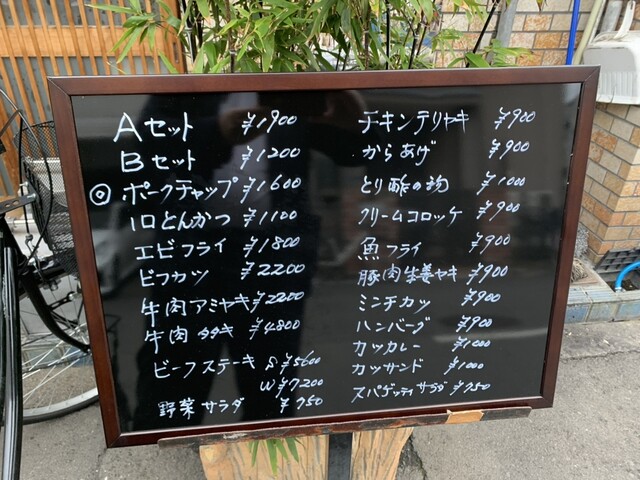 Aセット ¥1900
Bセット ¥1200
◎ ポークチャップ ¥1600
1口とんかつ ¥1100
エビフライ ¥1800
ビフカツ ¥2200
牛肉アミヤキ ¥2200
牛肉タタキ ¥4800
ビーフステーキ S ¥5600
W ¥7200
野菜サラダ ¥750
チキンテリヤキ ¥900
からあげ ¥900
とり酢の物 ¥1000
クリームコロッケ ¥900
魚フライ ¥900
豚肉生姜ヤキ ¥900
ミンチカツ ¥900
ハンバーグ ¥900
カツカレー ¥1000
カツサンド ¥1000
スパゲッティサラダ ¥750